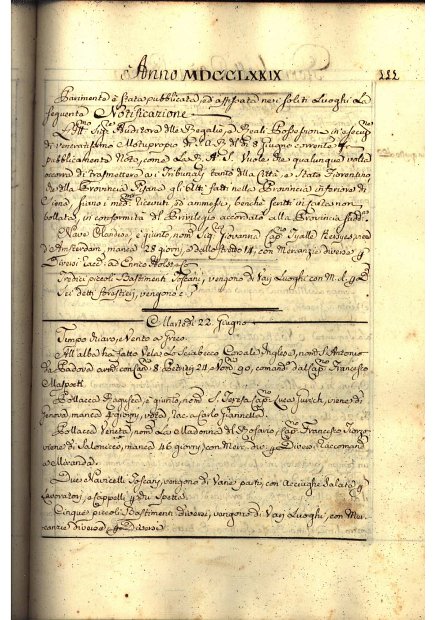 Anno MDCCLXXIX
Parimente è stata pubblicata, ed affissata nei soliti Luoghi La
seguente Notificazione
L'Ill.mo Sig.re Auditore delle Regalie, e Reali Possessioni in esecuz.ne
di veneratissimo Motuproprio di S.A.R. del dì 8 Giugno corrente fa
pubblicamente Noto, come La R.A.S. Vuole che qualunque volta
occorra di trasmettere ai Tribunali tanto della Città, e Stato Fiorentino
che della Provincia Pisana gli Atti fatti nella Provincia inferiore di
Siena, siano i med.mi ricevuti ed ammessi, benchè scritti in carta non
bollata, in conformità del Privilegio accordato alla Provincia sud.a
Nave Olandese, è giunto, nom.
d'Amsterdam, manca 25 giorni, e dallo stretto 14, con Mercanzie diverse p
Diversi racc. ad Enrico
Tredici piccoli Bastimenti Toscani, vengono di Varj Luoghi con M. e p D.
Sei detti forestieri, vengono c. s.
Martedì 22 Giugno
Tempo chiaro, e Vento a Greco.
All'alba ha fatto Vela Lo Sciabecco Corsale Inglese, nom. S. Antonio
da Padova arm. con Can. 8 Petrieri 24 e Uom. 90, comand. dal Cap. Francesco
Pollacca Ragusea, è giunto, nom. S. Teresa, Cap. Luca viene di
Genova manca 4 giorni, vota racc. a Carlo Giannella.
Pollacca Veneta, nom. La Madonna del Rosario, Cap. Francesco
viene di Salonicco, manca 46 giorni, con Merc. div. p Diversi raccomand.
a Miranda.
Due Navicelli Toscani, vengono di Varie parti, con Acciughe Salate p
Lavoratori, e Cappelli p du Spetta.
Cinque piccoli Bastimenti diversi, vengono di Varj Luoghi, con Mer-
canzie diverse p Diversi